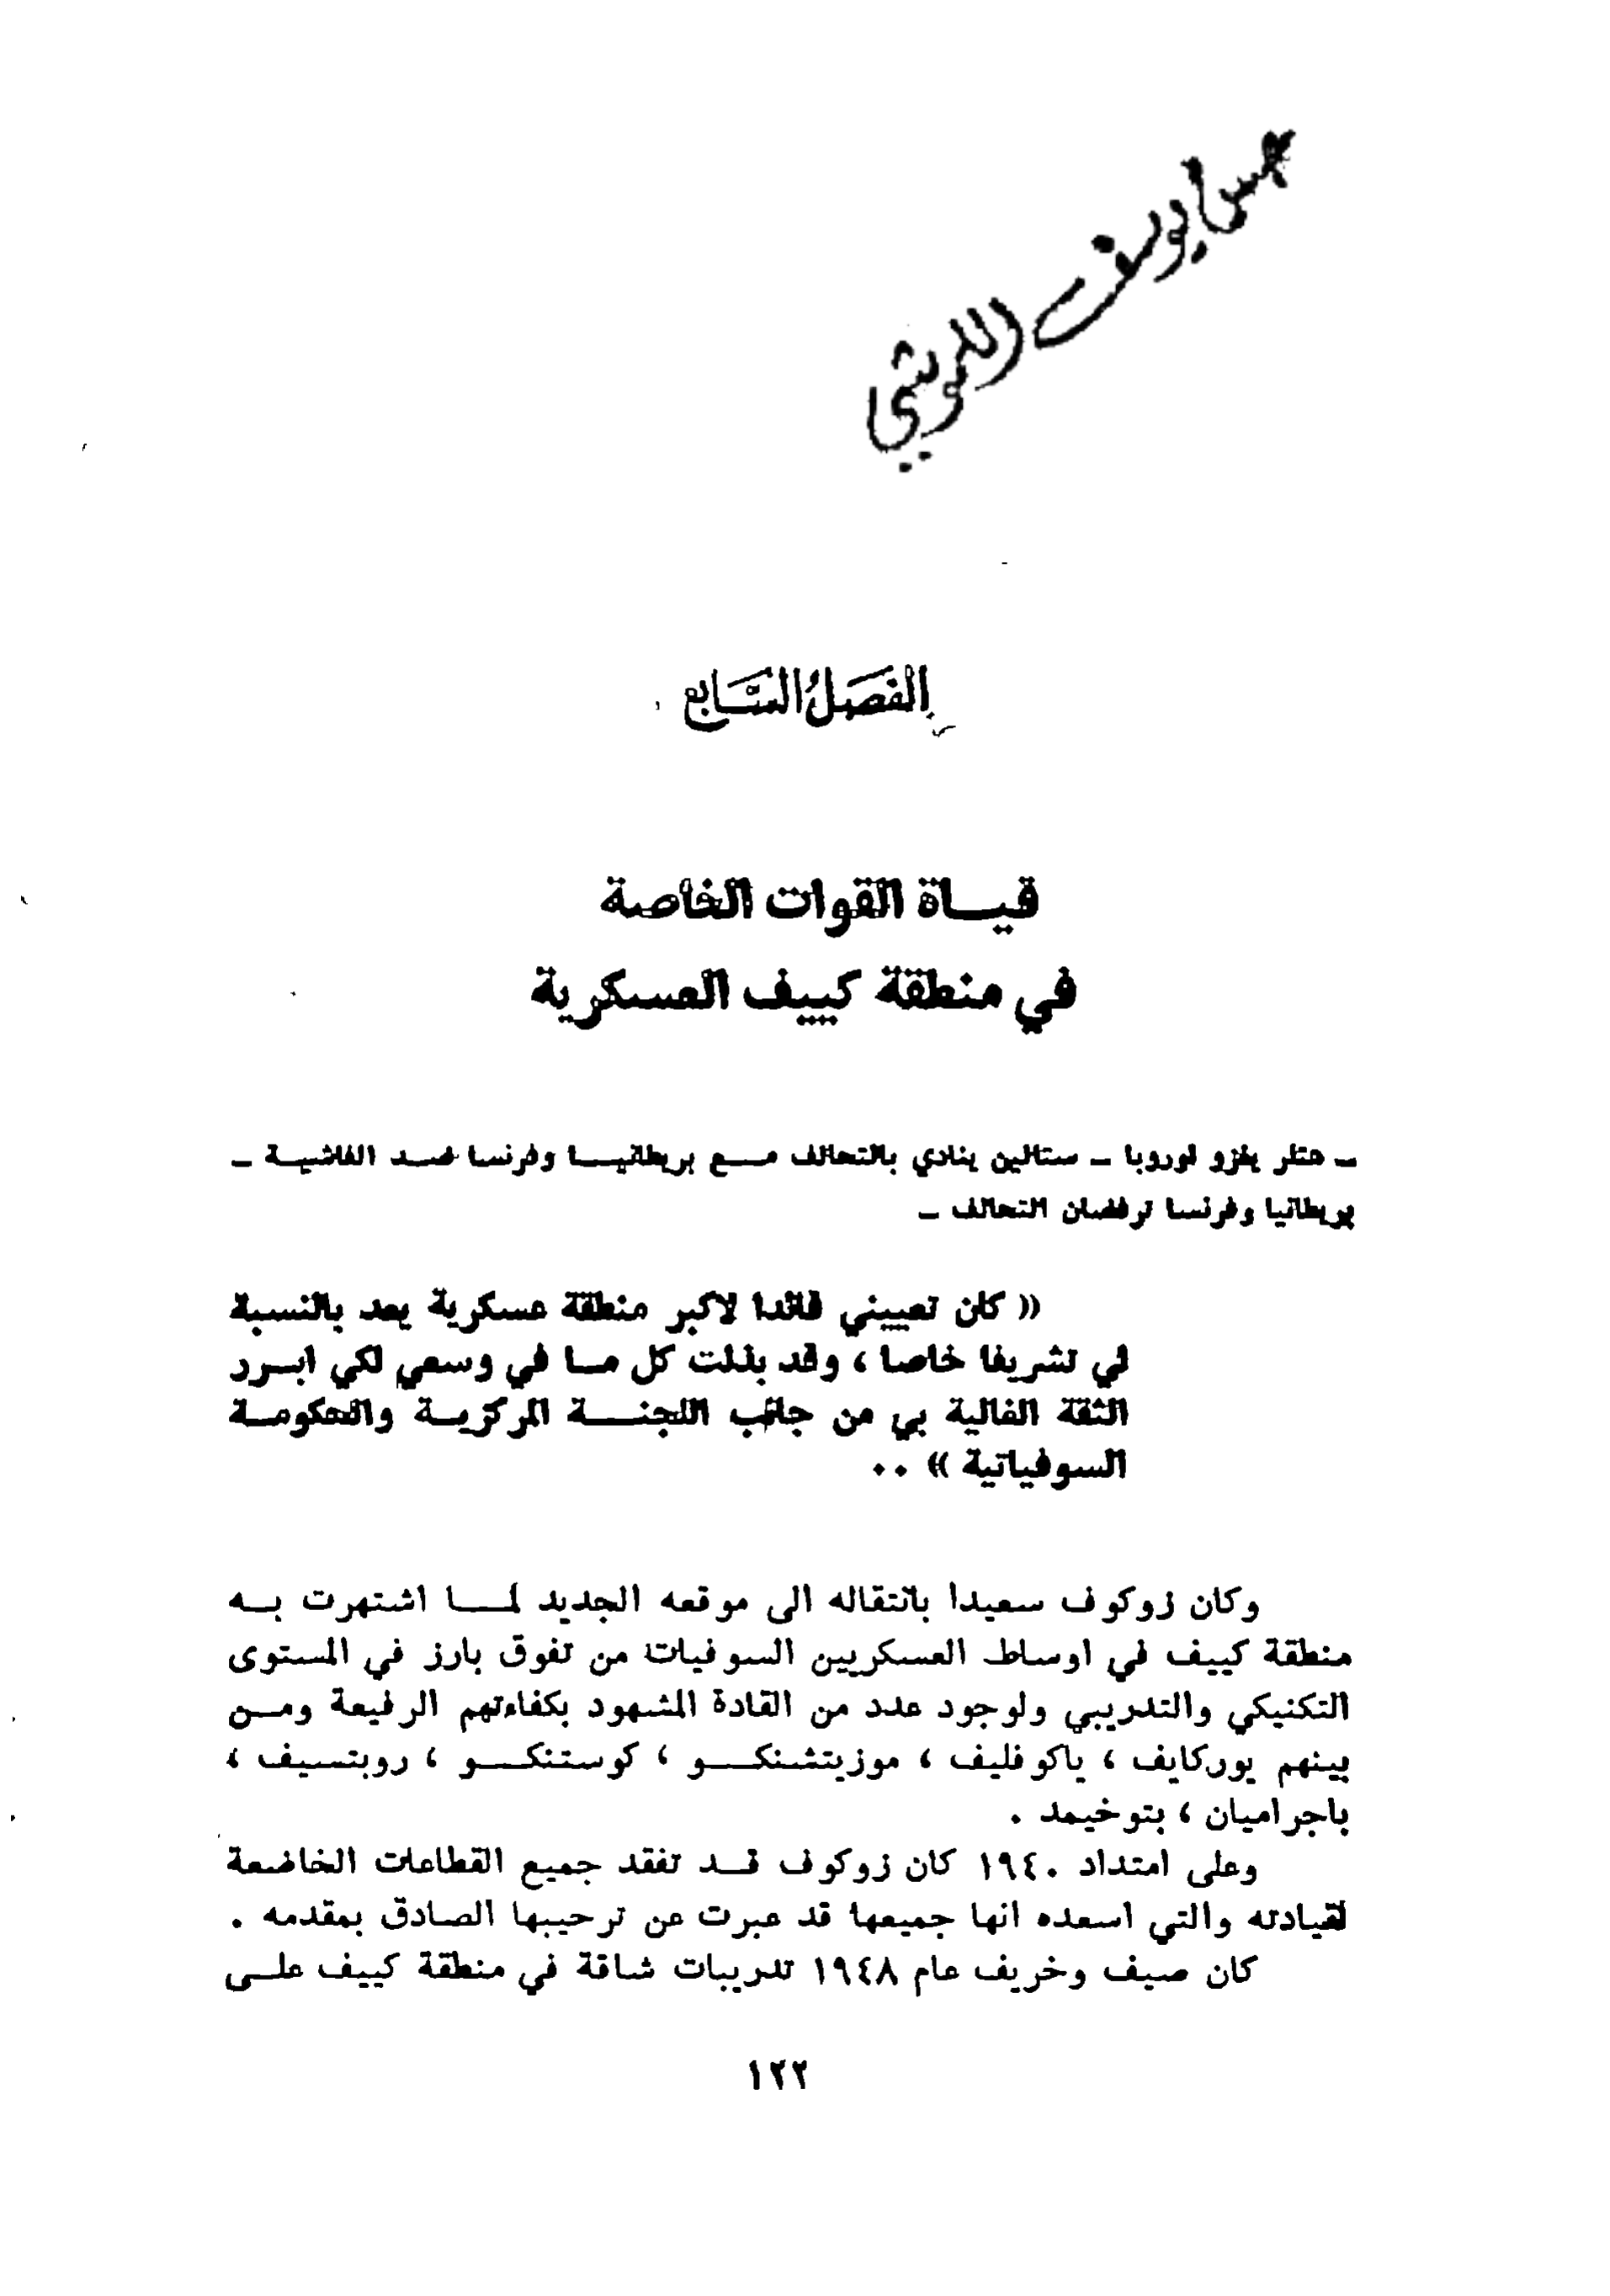 يوسف
الفصل السابع
قيـاة القوات الخاصة
في منطقة كييف العسكرية
ـ هتلر يغزو اوروبا ـ ستالين ينادي بالتحالف مـع بريطانيـا وفرنسا ضـد الفاشيـة ـ
بريطانيا وفرنسا ترفضان التحالف ـ
« كان تعييني قائدا لاكبر منطقة عسكرية يعد بالنسبة
لي تشريفا خاصا ، وقد بذلت كل مـا في وسعي لكي ابـرر
الثقة الغالية بي من جانب اللجنـة المركزيـة والحكومـة
السوفياتية » ..
وكان زوكوف سعيدا بانتقاله الى موقعه الجديد لمـا اشتهرت بـه
منطقة كييف في اوساط العسكريين السوفيات من تفوق بارز في المستوى
التكنيكي والتدريبي ولوجود عدد من القادة المشهود بكفاءتهم الرفيعة ومـن
بينهم يوركايف ، ياكوفليف ، موزيتشنكـو ، كوستنكـو ، روبتسيف ،
باجراميان ، بتوخيمد .
وعلى امتداد ١٩٤٠ كان زوكوف قـد تفقد جميع القطاعات الخاضعة
لقيادته والتي اسعده انها جميعها قد عبرت عن ترحيبها الصادق بمقدمه .
كان صيف وخريف عام ١٩٤٨ تدريبات شاقة في منطقة كييف علـى
١٢٢